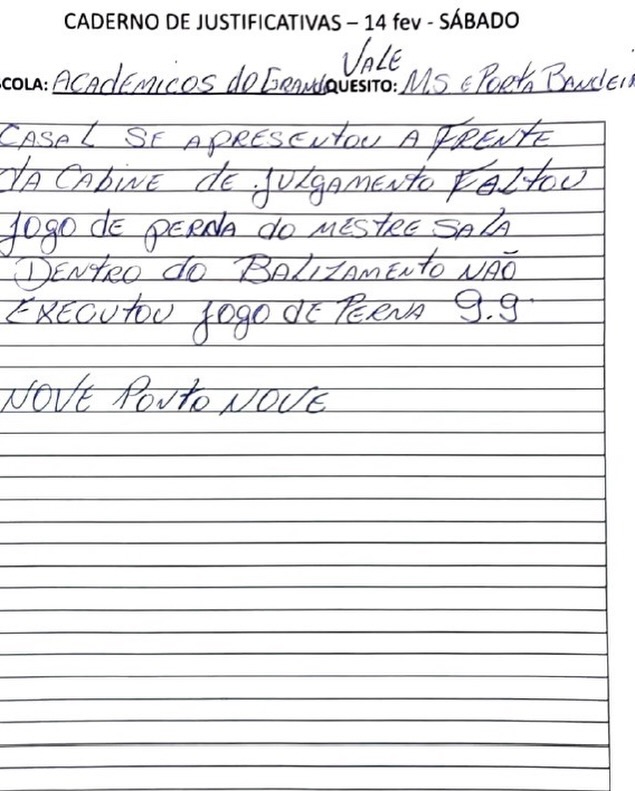 CADERNO DE JUSTIFICATIVAS – 14 fev - SÁBADO
VALE
SCOLA: ACADEMICOS DO GRANDE QUESITO: MS E PORTA BANDEIR
CASAL SE APRESENTOU A FRENTE
DA CABINE DE JULGAMENTO FALTOU
JOGO DE PERNA DO MESTRE SALA
DENTRO DO BALIZAMENTO NÃO
EXECUTOU JOGO DE PERNA 9.9
NOVE PONTO NOVE